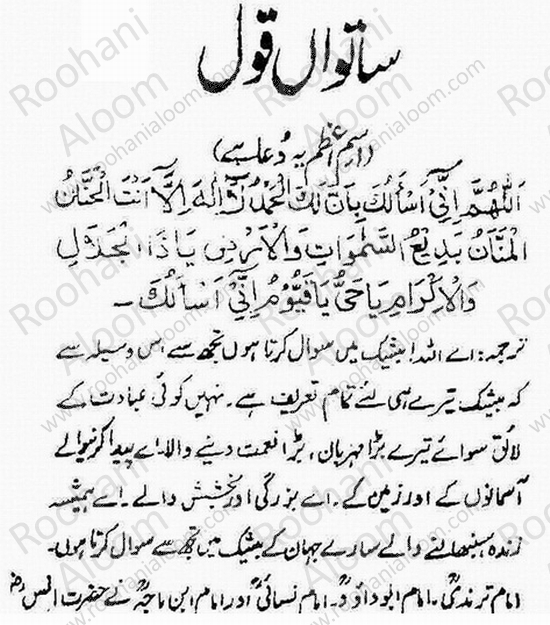 ساتواں قول
(اسمِ اعظم یہ دُعا ہے)
اَللّٰهُمَّ اِنِّیْ اَسْأَلُكَ بِاَنَّ لَكَ الْحَمْدُ لَآ اِلٰهَ اِلَّآ اَنْتَ الْحَنَّانُ
الْمَنَّانُ بَدِیْعُ السَّمٰوَاتِ وَالْاَرْضِ یَا ذَا الْجَلَالِ
وَالْاِكْرَامِ یَا حَیُّ یَا قَیُّوْمُ اِنِّیْ اَسْأَلُكَ ۔
ترجمہ: اے اللہ! بیشک میں سوال کرتا ہوں تجھ سے اس وسیلہ سے
کہ بیشک تیرے ہی لئے تمام تعریف ہے۔ نہیں کوئی عبادت کے
لائق سوائے تیرے بڑا مہربان، بڑا نعمت دینے والا۔ اے پیدا کرنیوالے
آسمانوں کے اور زمین کے۔ اے بزرگی اور بخشش والے۔ اے ہمیشہ
زندہ سنبھالنے والے سارے جہان کے بیشک میں تجھ سے سوال کرتا ہوں۔
امام ترمذیؒ۔ امام ابوداؤدؒ۔ امام نسائیؒ اور امام ابن ماجہؒ نے حضرت انسؓ
Roohani Aloom
www.roohanialoom.com